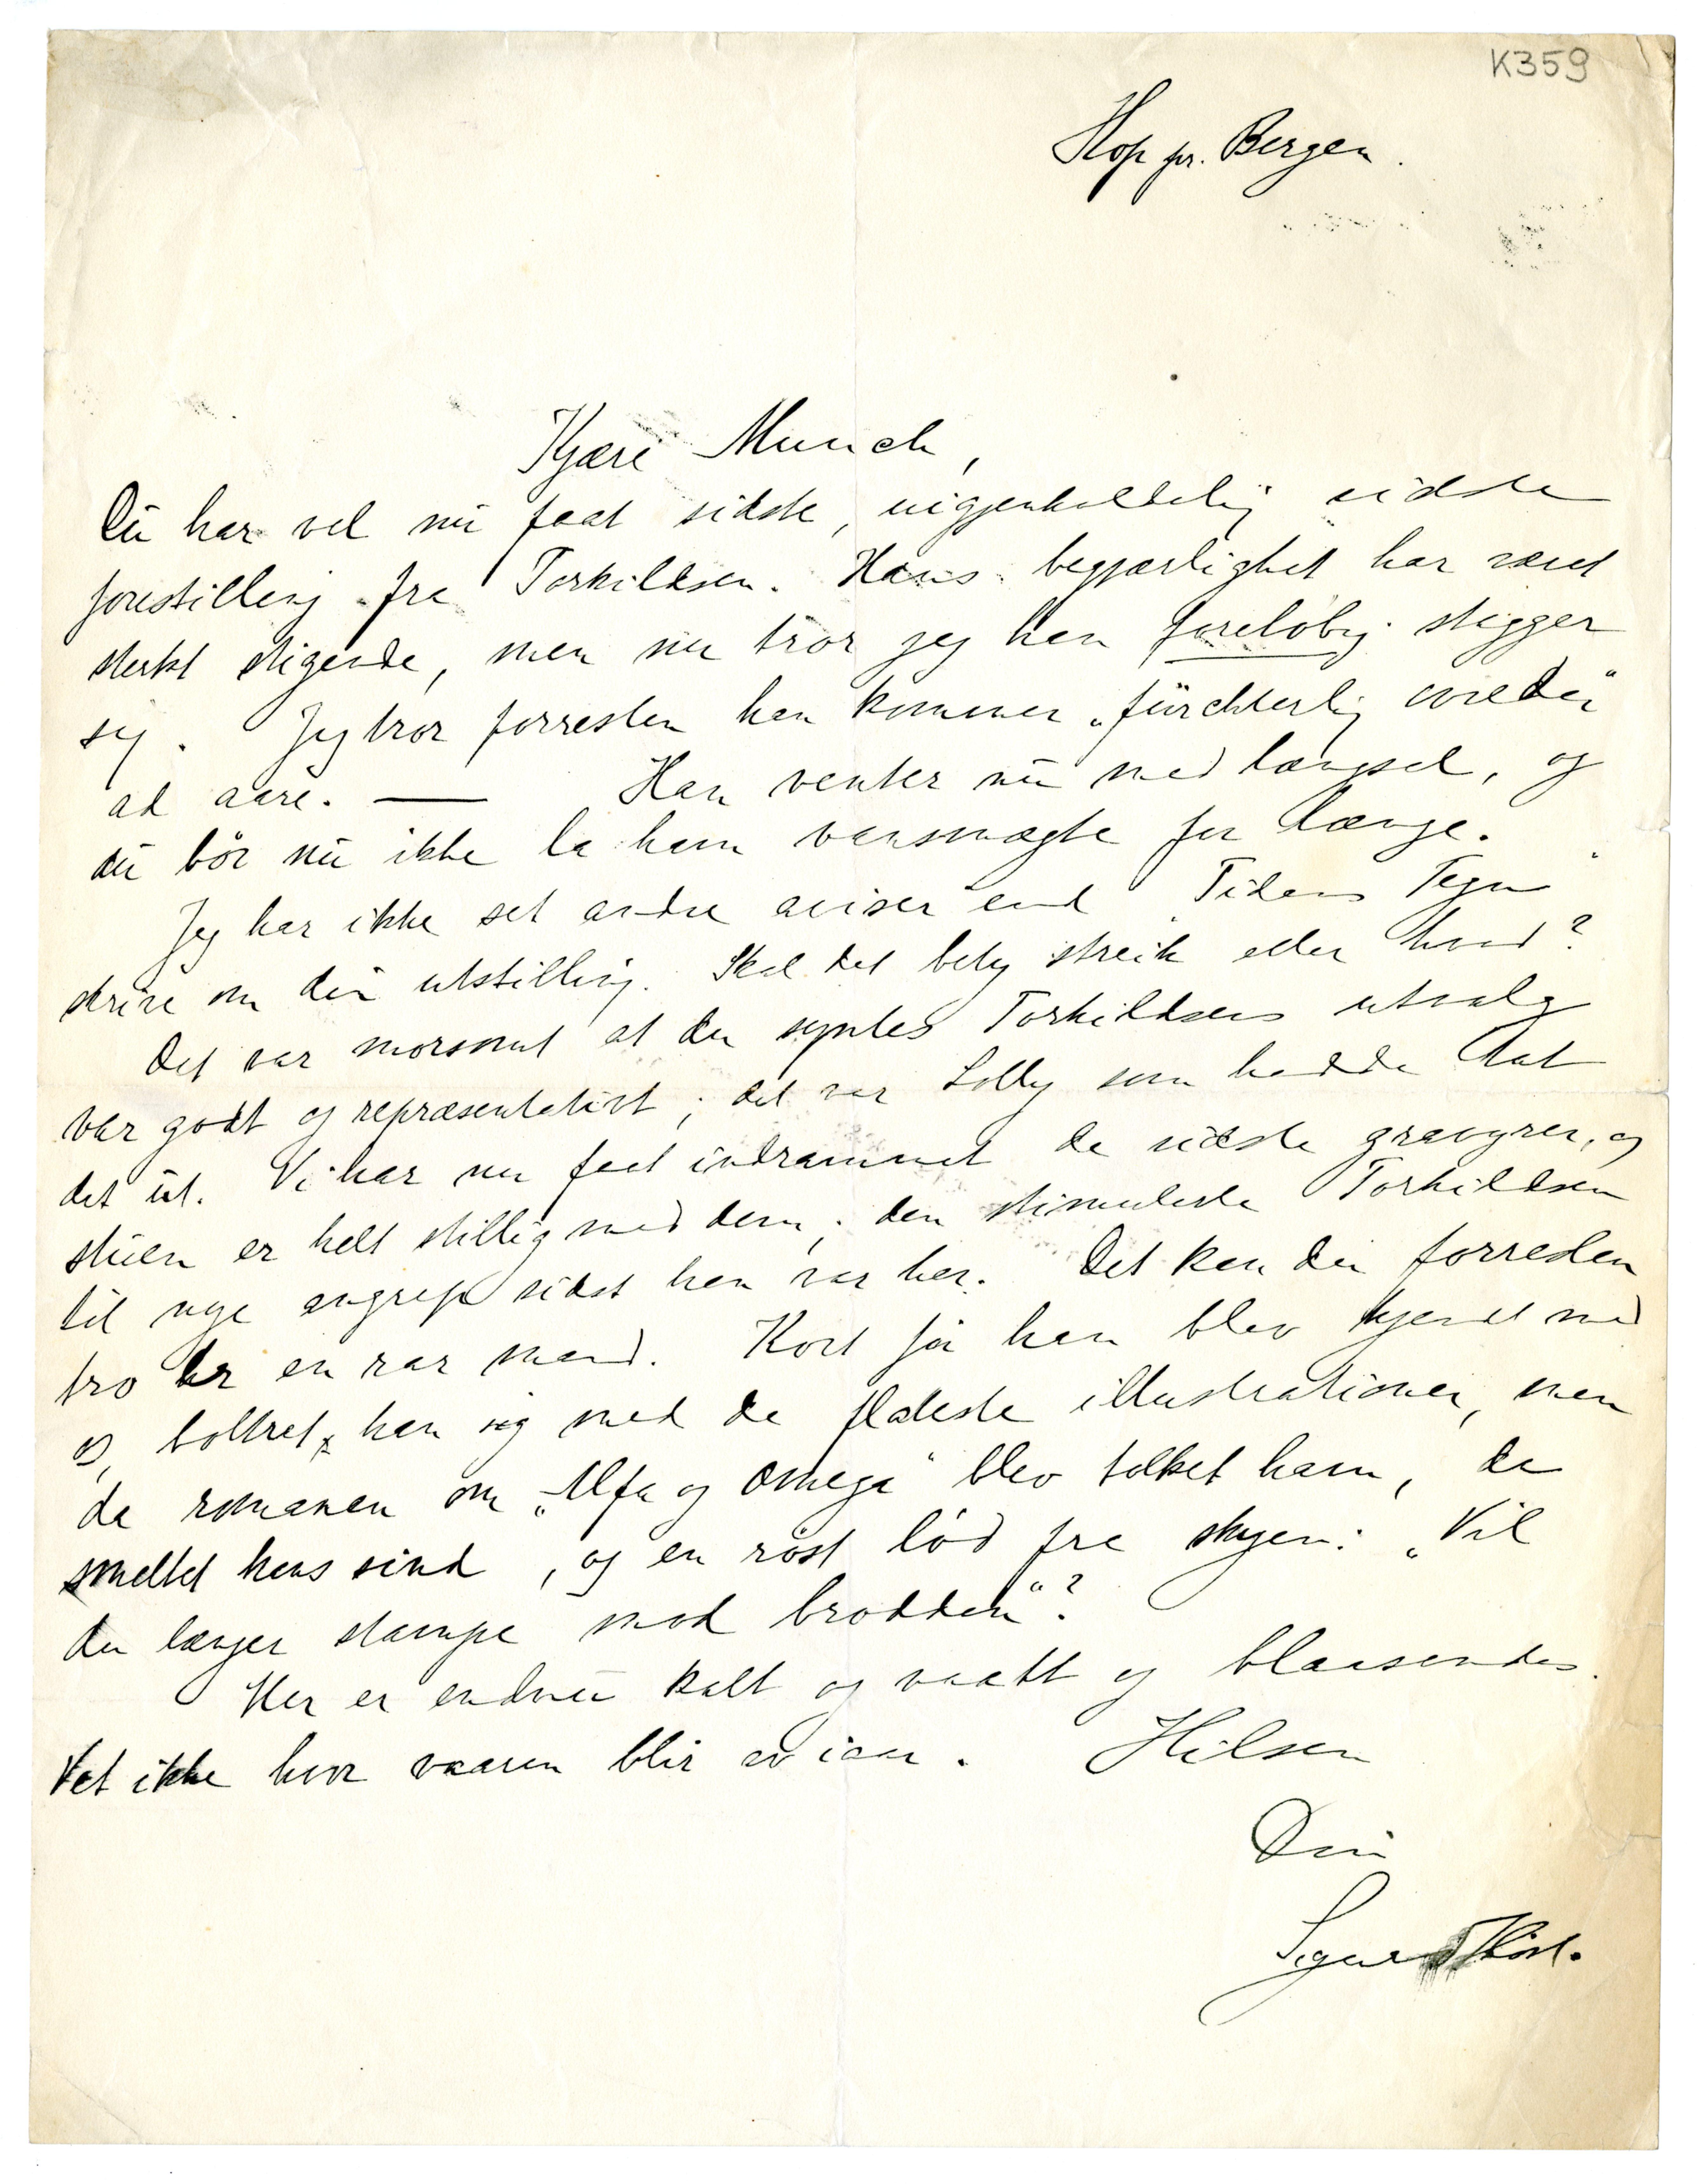 K359
Hop pr. Bergen.
Kjære Munch,
Du har vel nu faat sidste, uigjenkaldelig sidste
forestilling fra Torkildsen. Hans begjærlighet har været
sterkt stigende, men nu tror jeg han foreløbig stigger
sig. Jeg tror forresten han kommer „fürchterlig wieder“
ad aare. — Han venter nu med længsel, og
du bør nu ikke la ham vansmægte for længe.
Jeg har ikke set andre aviser end „Tidens Tegn“
skrive om din utstilling. Skal det bety streik eller hvad?
Det var morsomt at du syntes Torkildsens utvalg
var godt og repræsentativt; det var Lolly som hadde tat
det ut. Vi har nu faat indrammet de sidste gravyrer, og
stuen er helt stillig med dem; den stimulerte Torkildsen
til nye angrep sidst han var her. Det kan du forresten
tro er en rar mand. Kort før han blev kjendt med
os, boltret han sig med de fladeste illustrationer, men
da romanen om „Alfa og Omega“ blev tolket ham, da
smeltet hans sind, og en røst lød fra skyen: „Vil
du længer stampe mod brodden“?
Her er endnu kalt og vaatt og blaasendes.
Vet ikke hvor vaaren blir av iaar. Hilsen
Din
Sigurd Høst.